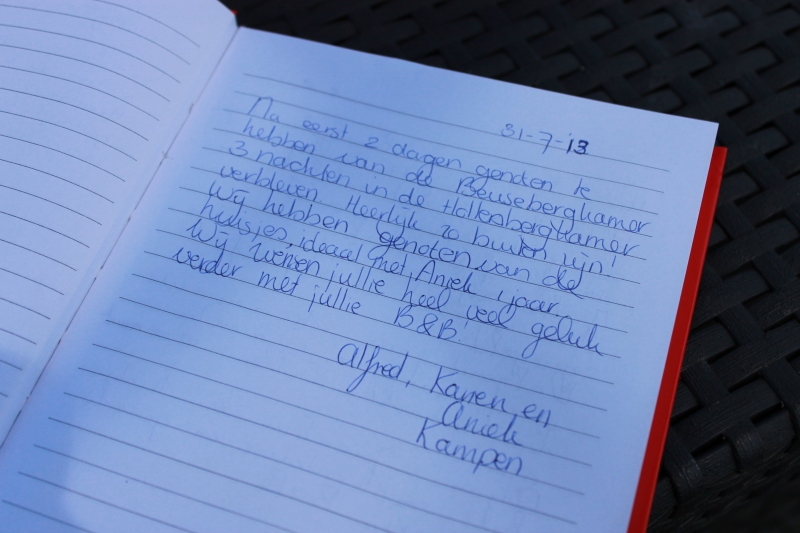 31-7-13
Na eerst 2 dagen genoten te
hebben van de Beusebergkamer
3 nachten in de Hollenbergkamer
verbleven. Heerlijk zo buiten zijn!
Wij hebben genoten van de
huisjes, ideaal met Aniek 1 jaar.
Wij wensen jullie heel veel geluk
verder met jullie B&B!
Alfred, Karen en
Aniek
Kampen